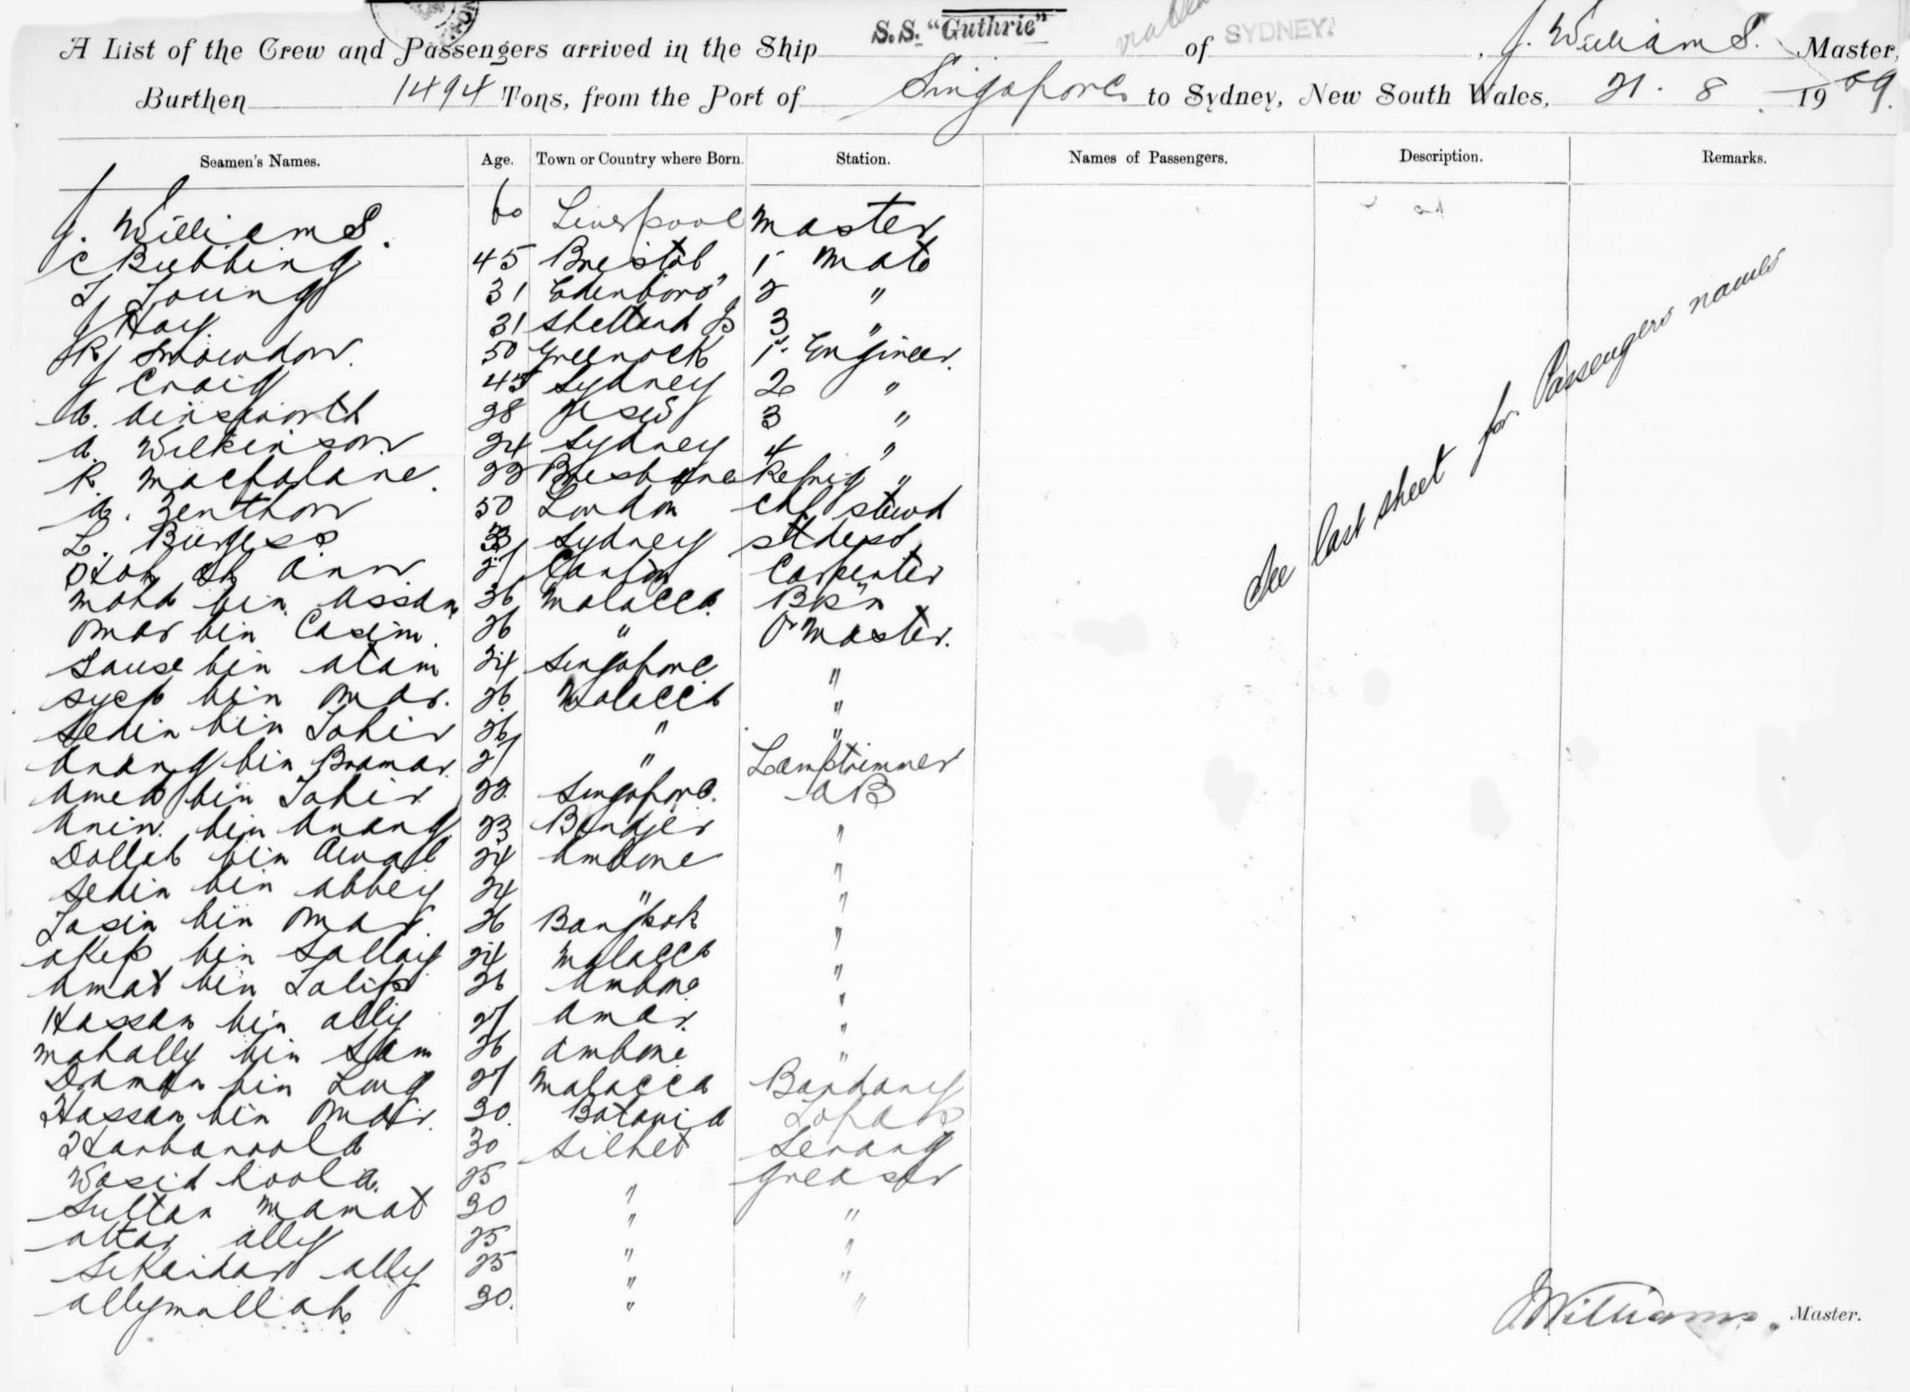 S.S. "Guthrie"
A List of the Crew and Passengers arrived in the Ship of SYDNEY, J. Williams. Master,
Burthen 1494 Tons, from the Port of Singapore to Sydney, New South Wales, 21. 8 1909.
Seamen's Names. Age. Town or Country where Born. Station. Names of Passengers. Description. Remarks.
J. Williams. 60 Liverpool Master
C Bubbing 45 Bristol 1 Mate
T Young 31 Edenboro' 2 "
J Hay. 31 Shetland Is 3 "
R J Snowdon. 50 Greenock 1 Engineer.
J Craig 45 Sydney 2 "
A. Ainsworth 28 3 "
A. Wilkinson 24 Sydney 4 "
R. Macfalane. 22 Brisbane Refrig "
A. Zenthon 50 London Chf stewd
L. Burgess Sydney stdess
Ah Ann 27 Canton Carpenter
Mohd bin Assan 36 Malacca Bos'n
Omar bin Casim. 26 " Qr Master.
Sause bin Atam 24 Singapore "
Syep bin Omar. 26 Malacca "
Sedin bin Tahir 26 " "
Anang bin Bramar. 27 " Lamptrimmer
Amed bin Tahir 22 Singapore. AB
Anin bin Anang 23 Bandjer "
Dollah bin Awal 24 Ambone "
Sedin bin Abbey 24 " "
Tasin bin Omar. 26 Bangkok "
Akep bin Sallay 24 Malacca "
Amat bin Talip 26 Ambone "
Hassan bin Ally 27 Amar. "
Mahally bin Sam 26 Ambone "
Draman bin Long 27 Malacca Bandary
Hassan bin Omar. 30. Batavia Topass
Hanbanoola 30 Silhet Serang
Wasid hoola. 25 " Greaser
Sultan Mamat 30 " "
Attar Ally 25 " "
Sekandar Ally 25 " "
Allymallah 30. " "
See last sheet for Passengers names
J Williams. Master.